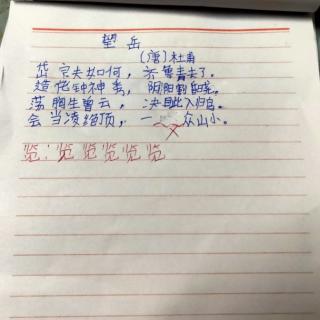 望岳
(唐)杜甫
岱宗夫如何,齐鲁青未了。
造化钟神秀,阴阳割昏晓。
荡胸生曾云,决眦入归鸟。
会当凌绝顶,一 众山小。
览:览览览览览